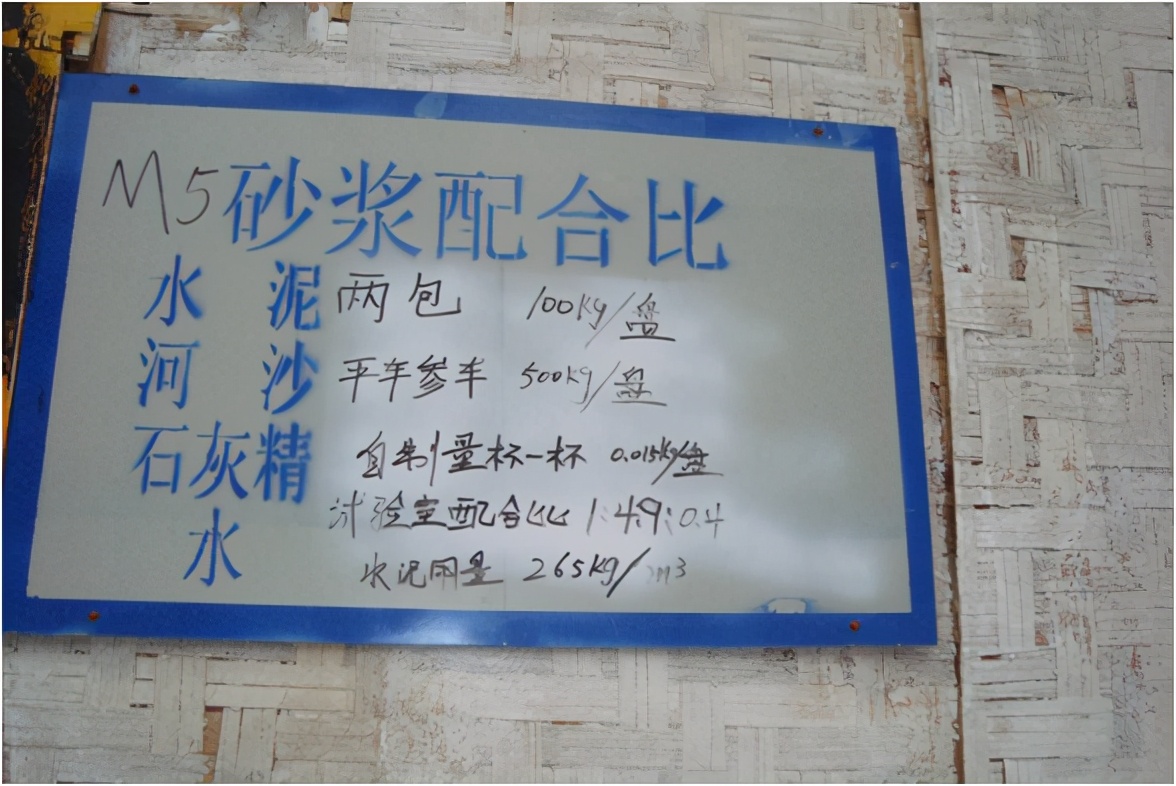 M5砂浆配合比
水 泥 两包 100kg/盘
河 沙 平车参车 500kg/盘
石灰精 自制量杯一杯 0.015kg/盘
试验室配合比 1:4.9:0.4
水 水泥用量 265kg/m3